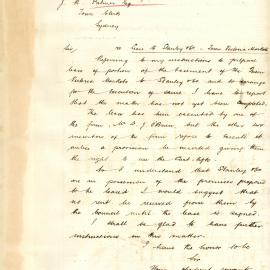 J. H. Palmer Esq
Town Clerk
Sydney
Sir,
re Lease to Stanley & Co - Queen Victoria Markets
Referring to my instructions to prepare
lease of portion of the basement of the Queen
Victoria Markets to Stanley & Co and to arrange
for the execution of same I have to report
that the matter has not yet been completed.
The lease has been executed by one of
the firm, Mr J. O'Brien but the other two
members of the firm refuse to execute it
unless a provision be inserted giving them
the right to use the Cart lifts.
As I understand that Stanley & Co
are in possession of the premises proposed
to be leased I would suggest that
no rent be received from them by
the Council until the lease is signed.
I shall be glad to have further
instructions in this matter.
I have the honor to be
Sir
Your obedient servant